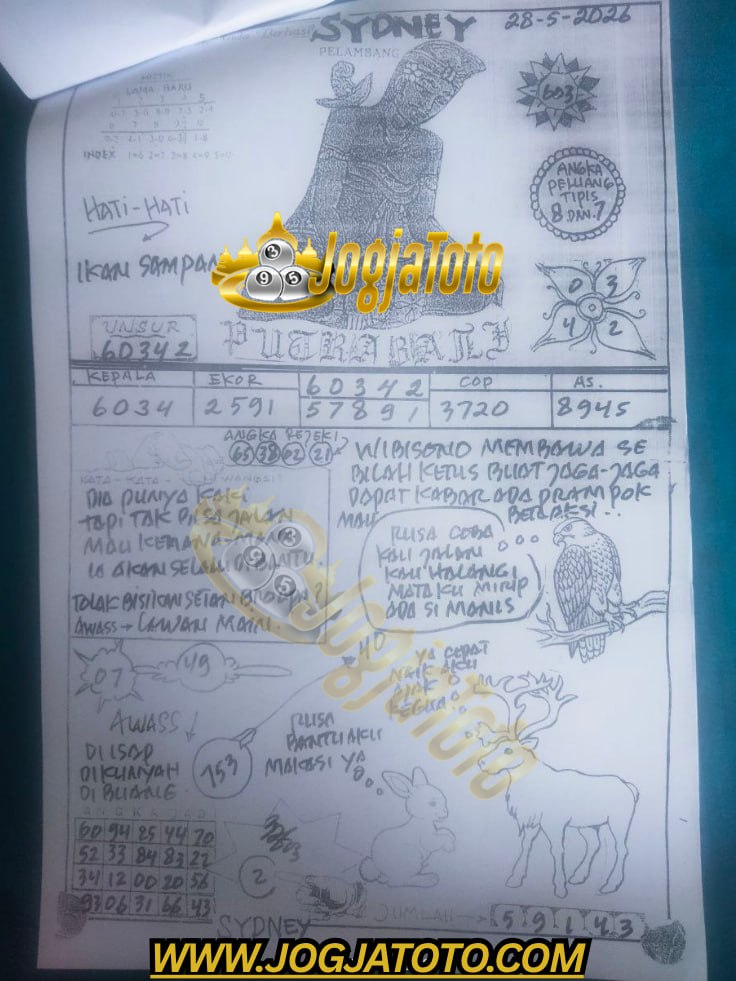 SYDNEY
28-5-2026
PELAMBANG
603
LAMA BARU
INDEX
ANGKA
PELUANG
TIPIS
8 DAN 7
HATI-HATI
IKAN SAMPAN
JogjaToto
3
9 5
0 3
4 2
UNSUR
60342
PUTRA BALI
KEPALA EKOR 60342 COP AS.
6034 2591 57891 3720 8945
ANGKA REJEKI
65 38 02 21
WIBISONO MEMBAWA SE
BILAH KERIS BUAT JAGA-JAGA
DAPAT KABAR ADA PRAMPOK
MAU BERAKSI...
KATA-KATA WANGSIT
DIA PUNYA KAKI
TAPI TAK BISA JALAN
MAU KEMANA-MANA
IA AKAN SELALU DIBANTU
TOLAK BISIKAN SETAN
AWASS → LAWAN MAIN.
RUSA COBA
KAU JALAN
KAU HALANGI
MATAKU MIRIP
ADA SI MANIS
3
9 5
JogjaToto
07
49
40
YA CEPAT
NAIK AKU
AJAK
KEDUA..
AWASS
DI ISAP
DIKUNYAH
DIBUANG
753
RUSA
BANTU AKU
MAKASI YA
ANGKA JADI
60 94 25 44 70
52 33 84 83 22
34 12 00 20 56
93 06 31 66 43
2
SYDNEY
JUMLAH → 5 9 1 4 3
WWW.JOGJATOTO.COM